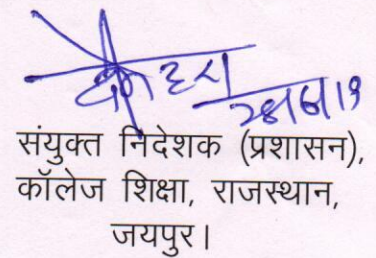 संयुक्त निदेशक (प्रशासन),
कॉलेज शिक्षा, राजस्थान,
जयपुर।